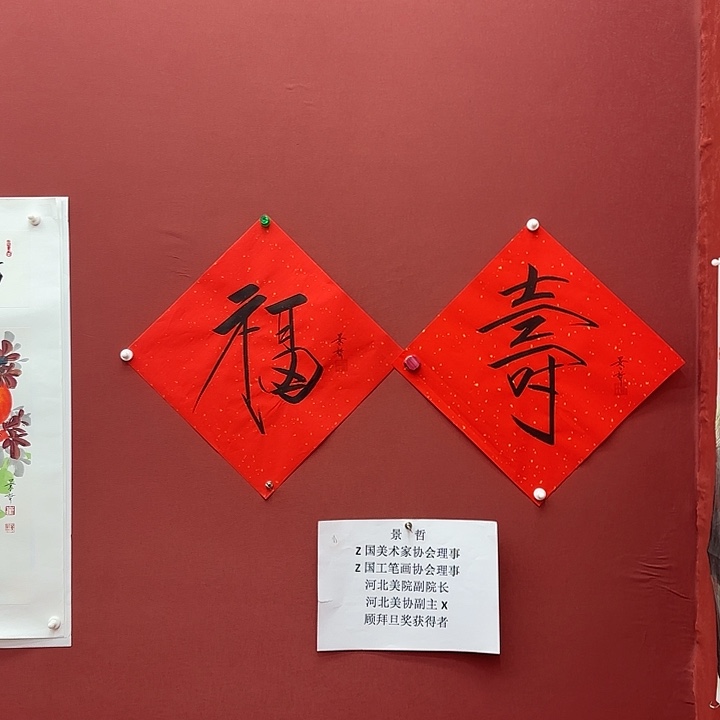 福
寿
景哲
景哲
景 哲
Z国美术家协会理事
Z国工笔画协会理事
河北美院副院长
河北美协副主X
顾拜旦奖获得者